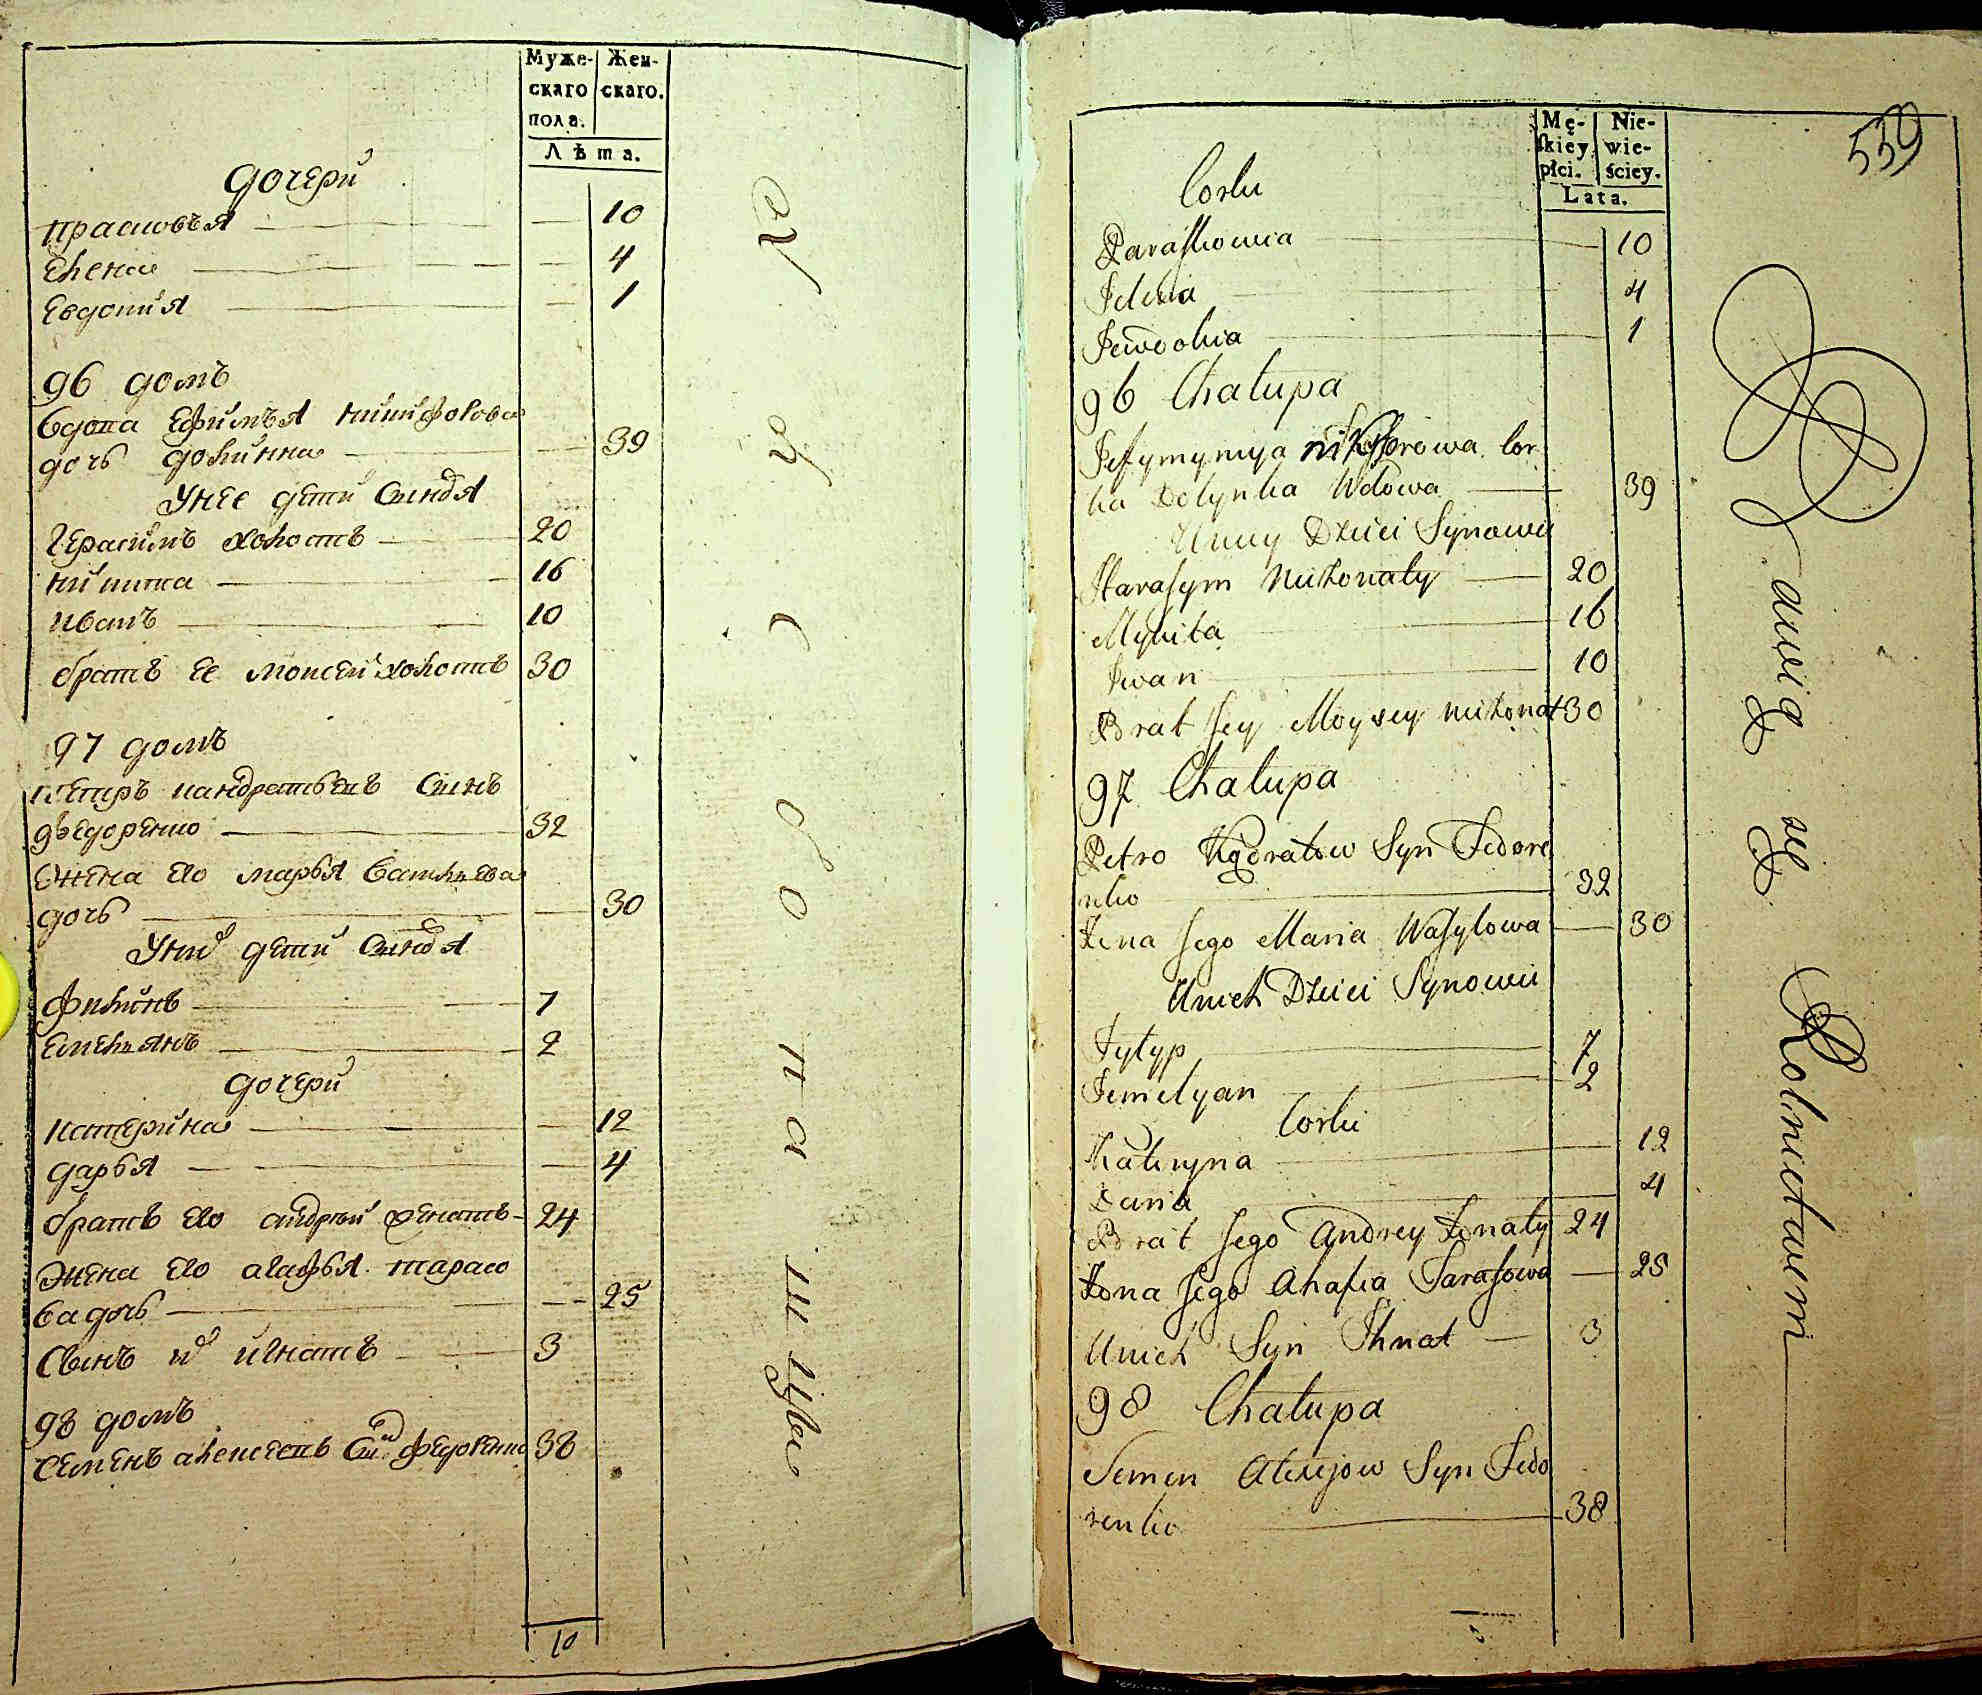 Муже-
скаго
пола.
Жен-
скаго.
Лѣта.
дочери
прасковья — — 10
Елена — — 4
Евдокия — — 1
96 домъ
вдова Ефимья никифорова
дочь долинка — — 39
У нее дети сыновя
Герасимъ холостъ — 20
никита — 16
иванъ — 10
братъ ее моисей холостъ 30
97 домъ
петръ кандратьевъ сынъ
федоренко — 32
жена его марья василева
дочь — — 30
У них дети сыновя
филипъ — 7
емельянъ — 2
дочери
катерина — — 12
дарья — — 4
братъ его андрей женатъ — 24
жена его агафья тарасо
ва дочь — — 25
Сынъ их игнатъ — 3
98 домъ
семенъ алексеевъ Сынъ федоренко 38
10
539
Mę-
skiey
płci.
Nie-
wie-
ściey.
Lata.
Corki
Paraskowia — 10
Jelena — 4
Jewdokia — 1
96 Chałupa
Jefymyniya nikiforowa cor
ka Dolynka Wdowa — 39
U niey Dzieci Synowie
Harasym nieżonaty — 20
Mykita — 16
Iwan — 10
Brat Jey Moysey nieżonat 30
97 Chałupa
Petro Kądratow Syn Fedore
nko — 32
Żena Jego Maria Wasylowa — 30
U nich Dzieci Synowie
Fyłyp — 7
Jemelyan — 2
Corki
Kateryna — 12
Daria — 4
Brat Jego Andrey Żonaty 24
Żona Jego Ahafia Tarasowa — 25
U nich Syn Ihnat — 3
98 Chałupa
Semen Alexiejow Syn Fedo
renko — 38
bawią się Rolnictwem